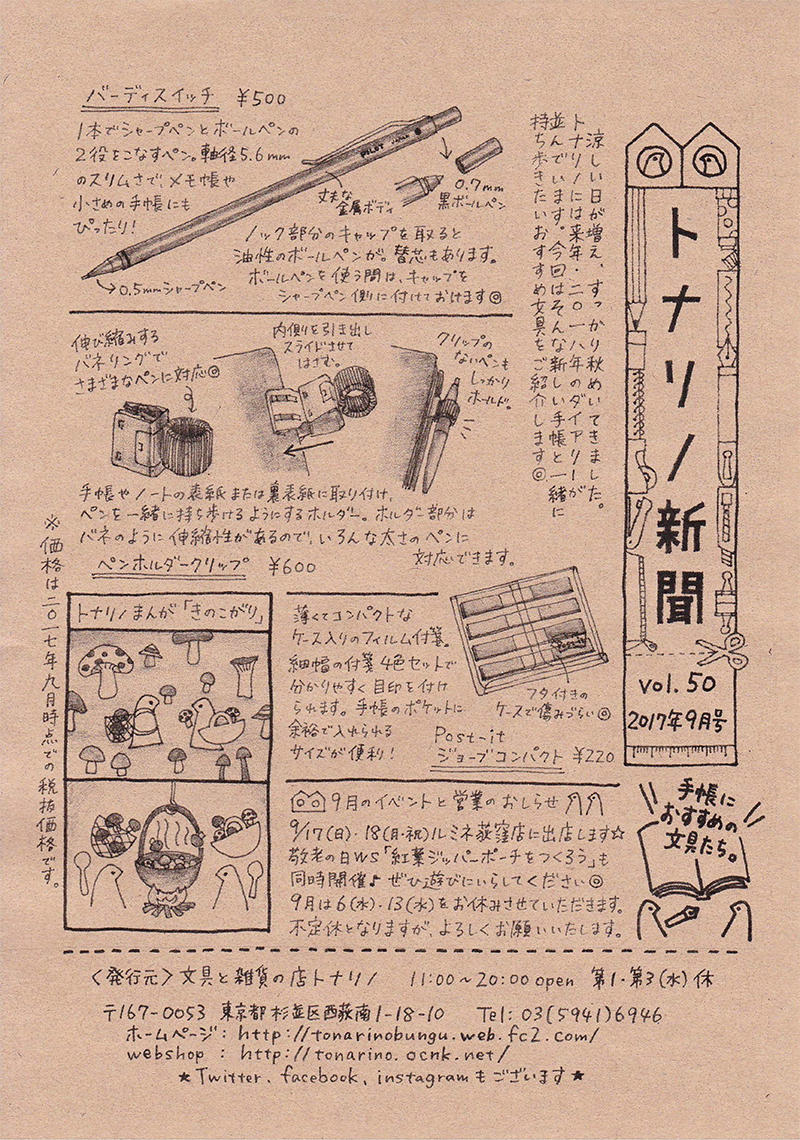 トナリノ新聞
vol.50
2017年9月号
手帳に
おすすめの
文具たち。
涼しい日が増え、すっかり秋めいてきました。
トナリノには来年・二〇一八年のダイアリーが
並んでいます。今回はそんな新しい手帳と一緒に
持ち歩きたいおすすめ文具をご紹介します◎
バーディスイッチ ¥500
1本でシャープペンとボールペンの
2役をこなすペン。軸径5.6mm
のスリムさで、メモ帳や
小さめの手帳にも
ぴったり!
PILOT JAPAN
丈夫な
金属ボディ
0.7mm
黒ボールペン
0.5mmシャープペン
ノック部分のキャップを取ると
油性のボールペンが。替芯もあります。
ボールペンを使う間は、キャップを
シャープペン側に付けておけます◎
伸び縮みする
バネリングで
さまざまなペンに対応◎
内側を引き出し
スライドさせて
はさむ。
クリップの
ないペンも
しっかり
ホールド。
手帳やノートの表紙または裏表紙に取り付け、
ペンを一緒に持ち歩けるようにするホルダー。ホルダー部分は
バネのように伸縮性があるので、いろんな太さのペンに
対応できます。
ペンホルダークリップ ¥600
※価格は二〇一七年九月時点での税抜価格です。
トナリノまんが「きのこがり」
薄くてコンパクトな
ケース入りのフィルム付箋。
細幅の付箋4色セットで
分かりやすく目印を付け
られます。手帳のポケットに
余裕で入れられる
サイズが便利!
フタ付きの
ケースで傷みづらい◎
Post-it
ジョーブコンパクト ¥220
9月のイベントと営業のおしらせ
9/17(日)・18(月・祝)ルミネ荻窪店に出店します☆
敬老の日WS「紅葉ジッパーポーチをつくろう」も
同時開催♪ ぜひ遊びにいらしてください◎
9月は6(水)・13(水)をお休みさせていただきます。
不定休となりますが、よろしくお願いいたします。
〈発行元〉文具と雑貨の店トナリノ 11:00~20:00 open 第1・第3(水)休
〒167-0053 東京都杉並区西荻南1-18-10 Tel: 03(5941)6946
ホームページ: http://tonarinobungu.web.fc2.com/
webshop : http://tonarino.ocnk.net/
★Twitter、facebook、instagramもございます★